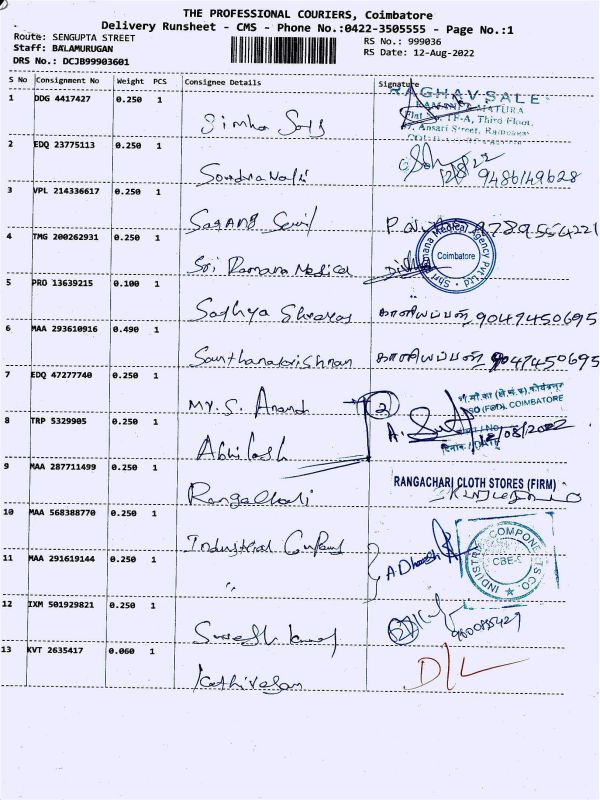 THE PROFESSIONAL COURIERS, Coimbatore
Delivery Runsheet - CMS - Phone No.:0422-3505555 - Page No.:1
Route: SENGUPTA STREET
RS No.: 999036
Staff: BALAMURUGAN
RS Date: 12-Aug-2022
DRS No.: DCJB99903601
S No Consignment No Weight PCS Consignee Details Signature
1 DDG 4417427 0.250 1
RAGHAV SALE
Flat 1F-A, Third Floor,
Ansari Street, Ramnagar
2 EDQ 23775113 0.250 1
12/8/22
9486149628
3 VPL 214336617 0.250 1
9789554221
4 TMG 200262931 0.250 1 Sri Ramana Medical
Shri Ramana Medical Agency Pvt Ltd Coimbatore
5 PRO 13639215 0.100 1 Sadhya
காளியப்பன் 9047450695
6 MAA 293610916 0.490 1 Santhanakrishnan
காளியப்பன் 9047450695
7 EDQ 47277740 0.250 1 Mr. S. Anand
2
SSO (FOD), COIMBATORE
8 TRP 5329905 0.250 1 Abhilash
A.
12/08/2022
दिनांक / DATE
9 MAA 287711499 0.250 1
RANGACHARI CLOTH STORES (FIRM)
10 MAA 568388770 0.250 1 Industrial
INDUSTRIAL COMPONENTS CO. CBE
11 MAA 291619144 0.250 1 "
A Dhanesh
12 IXM 501929821 0.250 1 Suresh Kumar
13 KVT 2635417 0.060 1 Kathiresan
D/L